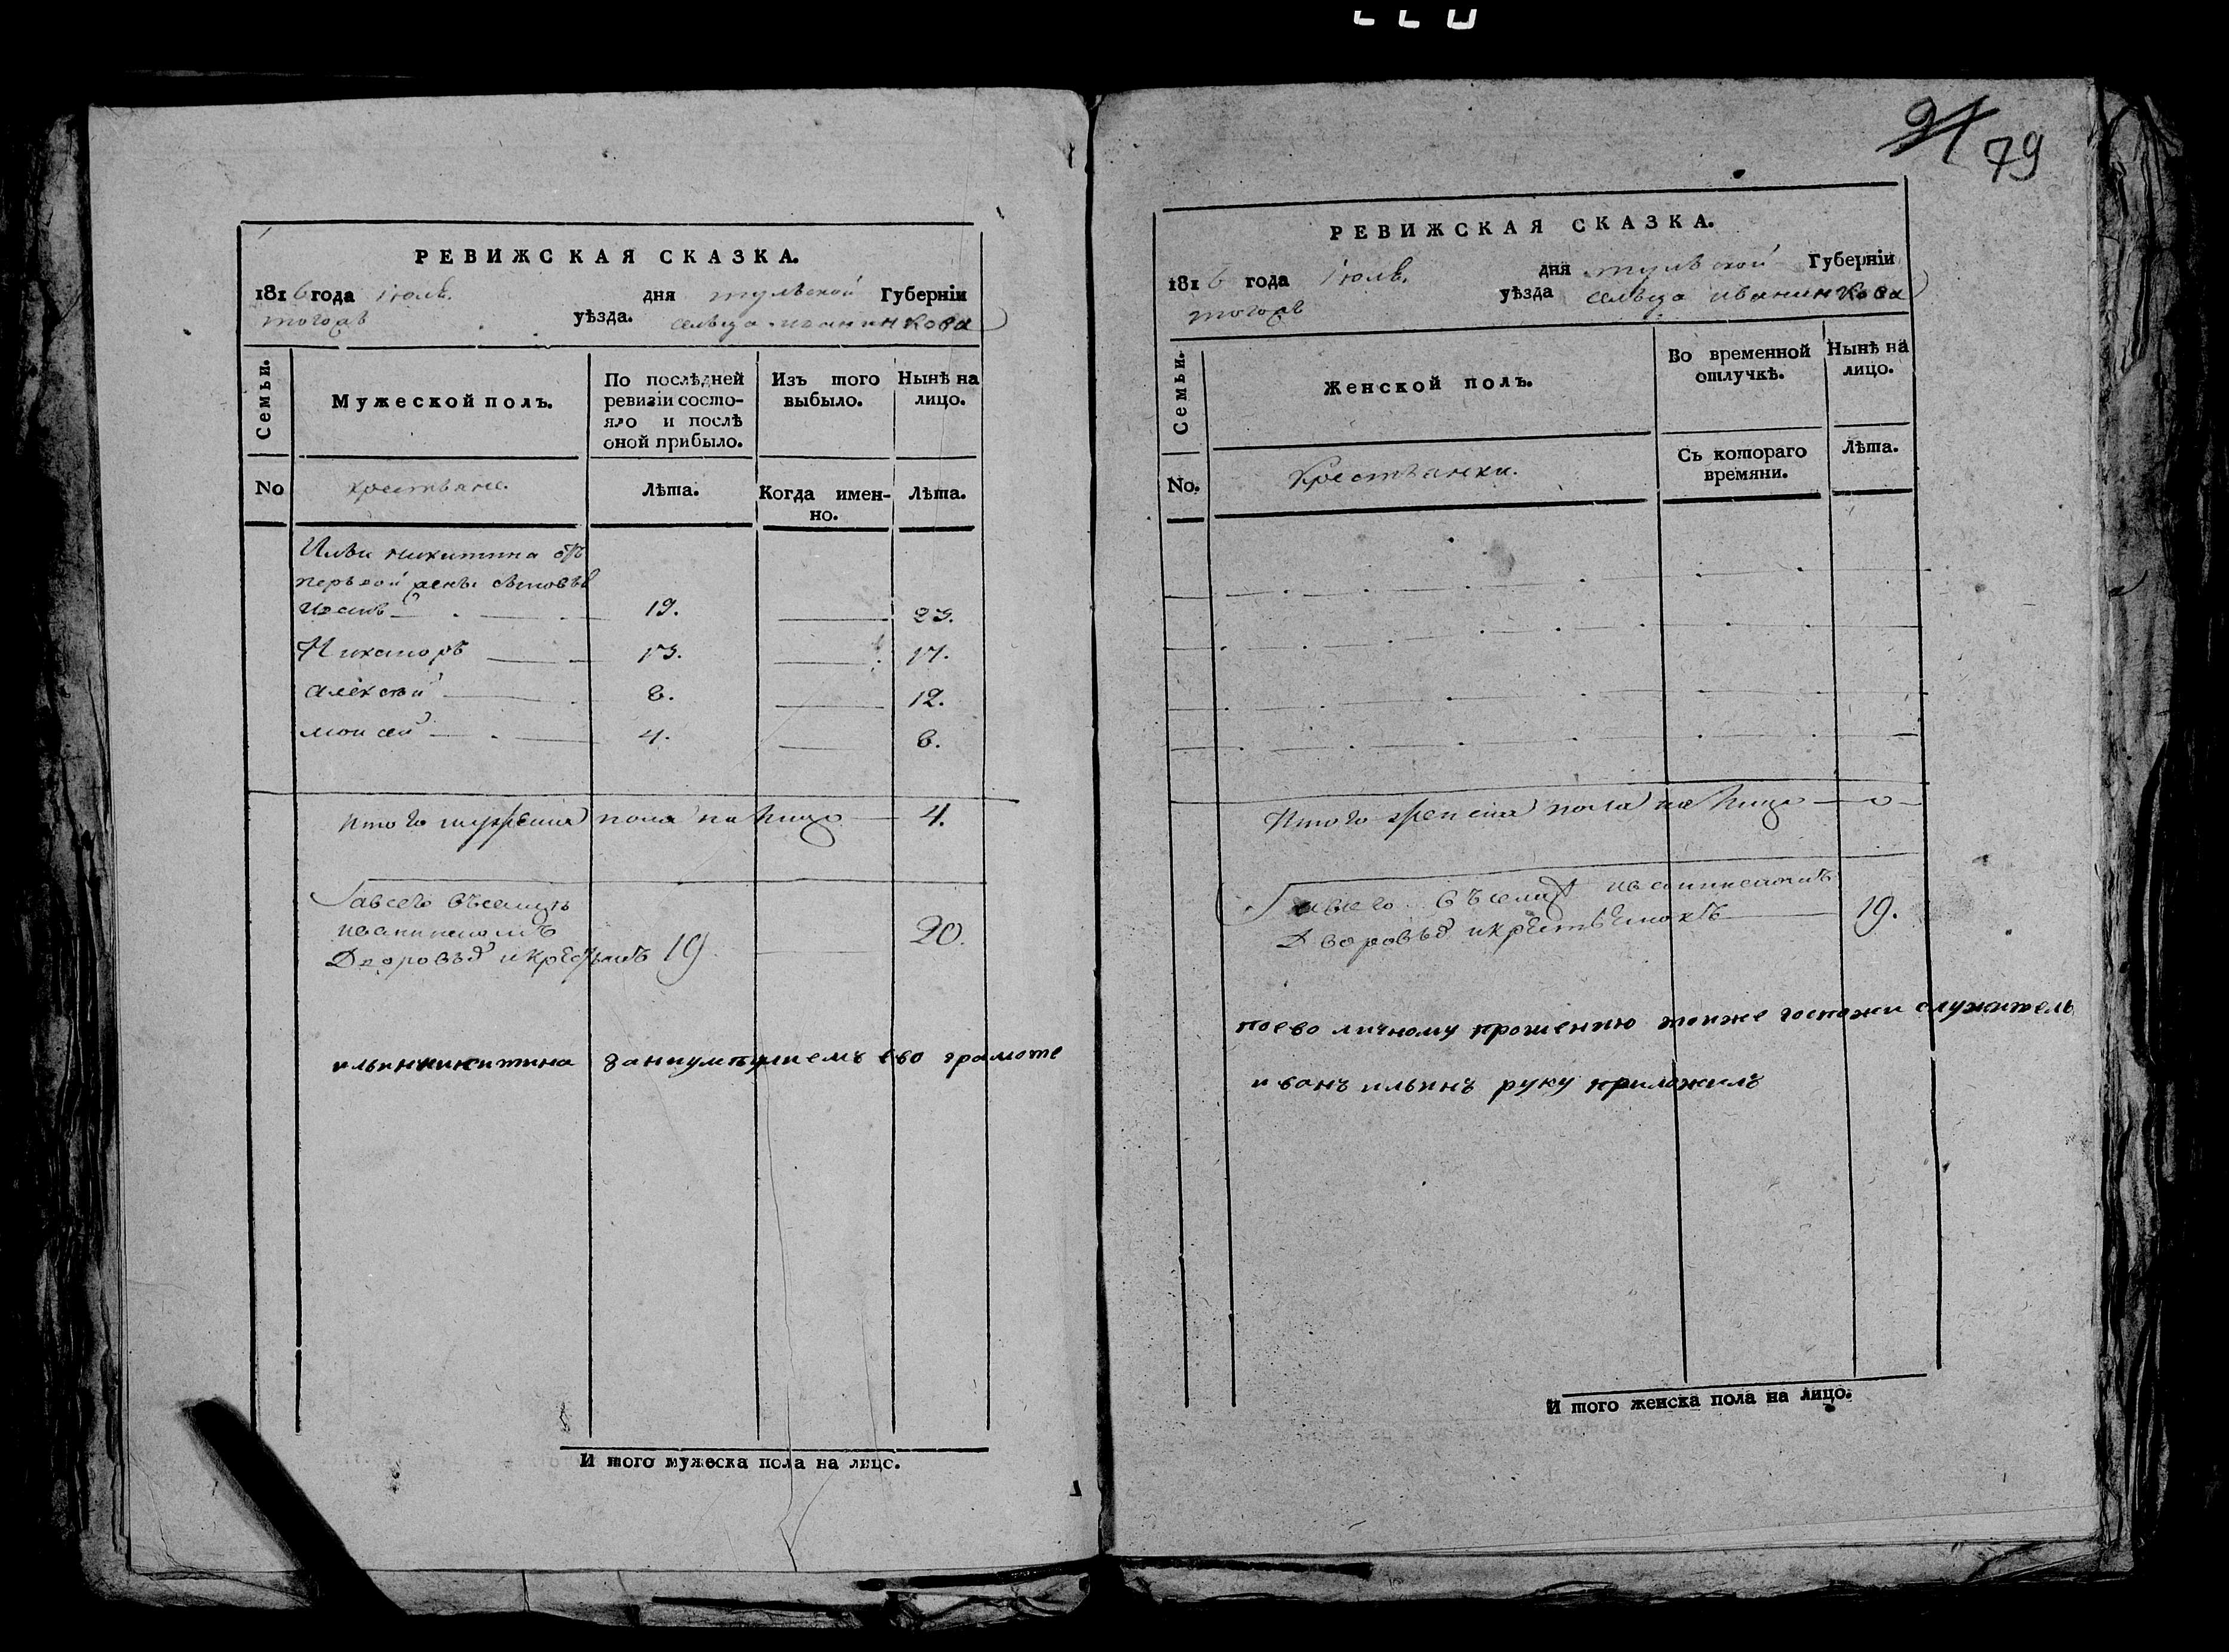 91 79
РЕВИЖСКАЯ СКАЗКА.
1816 года Июль. дня тульской Губерніи
тогожъ уѣзда. сельца иванинкова
Семьи.
Мужеской полъ.
По послѣдней ревизіи состояло и послѣ оной прибыло.
Изъ того выбыло.
Нынѣ на лицо.
No
крестьяне.
Лѣта.
Когда именно.
Лѣта.
Ильи никитина отъ
первой жены сыновья
Иванъ 19. 23.
Никаноръ 13. 17.
алексѣй 8. 12.
моисей 4. 8.
Итого мужеска пола на лицо 4.
Навсего въсемъ
Дворовыхъ икрестьянъ 19. 20.
ильи никитина занеумѣниемъ ево грамоте
И того мужеска пола на лицо.
РЕВИЖСКАЯ СКАЗКА.
1816 года Июль. дня тульской Губерніи
тогожъ уѣзда сельца иванинкова
Семьи.
Женской полъ.
Во временной отлучкѣ.
Нынѣ на лицо.
No.
Крестьянки.
Съ котораго времяни.
Лѣта.
Итого женска пола на лицо 0
въсемъ
Дворовыхъ икрестьянокъ 19.
поево личному прошению тойже госпожи служитель
иванъ ильинъ руку приложилъ
И того женска пола на лицо.